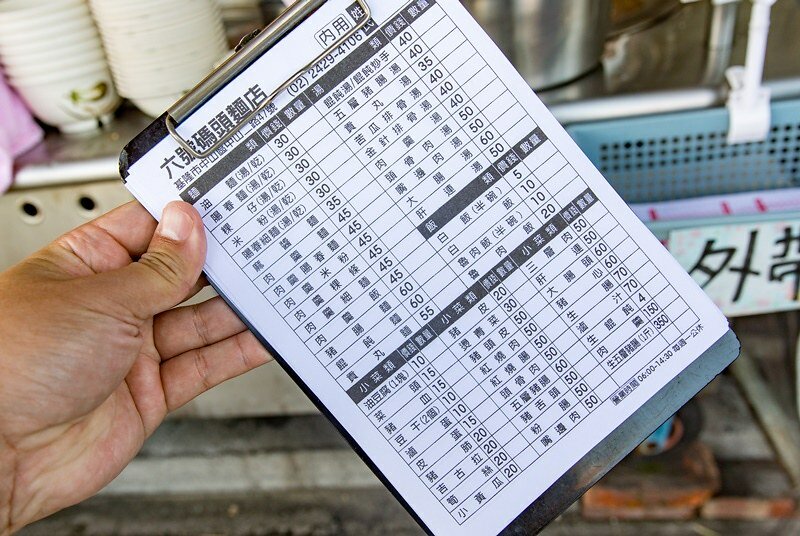 內用 姓
(02)2429-4106
六號碼頭麵店
基隆市中山區中山一路47號
麵 類 價錢 數量
油 麵(湯/乾) 30
陽春麵(湯/乾) 30
粿 仔(湯/乾) 30
米 粉(湯/乾) 30
陽春細麵(湯/乾) 35
麻 醬 麵 45
肉 羹 麵 45
肉羹陽春麵 45
肉 羹 米 粉 45
肉 羹 粿 45
肉 羹 細 麵 45
肉 羹 飯 60
大 腸 麵 60
餛 飩 麵 60
貢 丸 麵 55
湯 類 價錢 數量
餛飩湯/餛飩抄手 40
五層豬腸湯 40
貢 丸 湯 35
苦瓜排骨湯 40
金針排骨湯 40
肉 羹 湯 40
頭 骨 肉 湯 50
嘴 邊 肉 湯 50
大 腸 湯 50
肝 連 湯 50
飯 類 價錢 數量
白 飯(半碗) 5
白 飯 10
魯肉飯(半碗) 10
魯 肉 飯 20
小 菜 類 價錢 數量
油豆腐(1塊) 10
菜 頭 15
豬 血 15
豆 干(2個) 10
滷 蛋 10
皮 蛋 15
豬 肺 20
吉 古 拉 20
筍 絲 20
小 黃 瓜 20
小 菜 類 價錢 數量
豬 皮 20
燙 青 菜 30
豬 頭 皮 50
紅 燒 肉 50
紅 燒 腸 50
頭 骨 肉 50
五層豬腸 60
豬 舌 頭 50
粉 腸 50
嘴 邊 肉 50
小 菜 類 價錢 數量
三 層 肉 50
肝 連 50
大 腸 頭 60
豬 心 60
生 腸 70
滷 汁 70
生 餛 飩 4
肉 羹 150
生五層豬腸(1斤) 350
營業時間 06:00-14:30 每週一公休
外帶